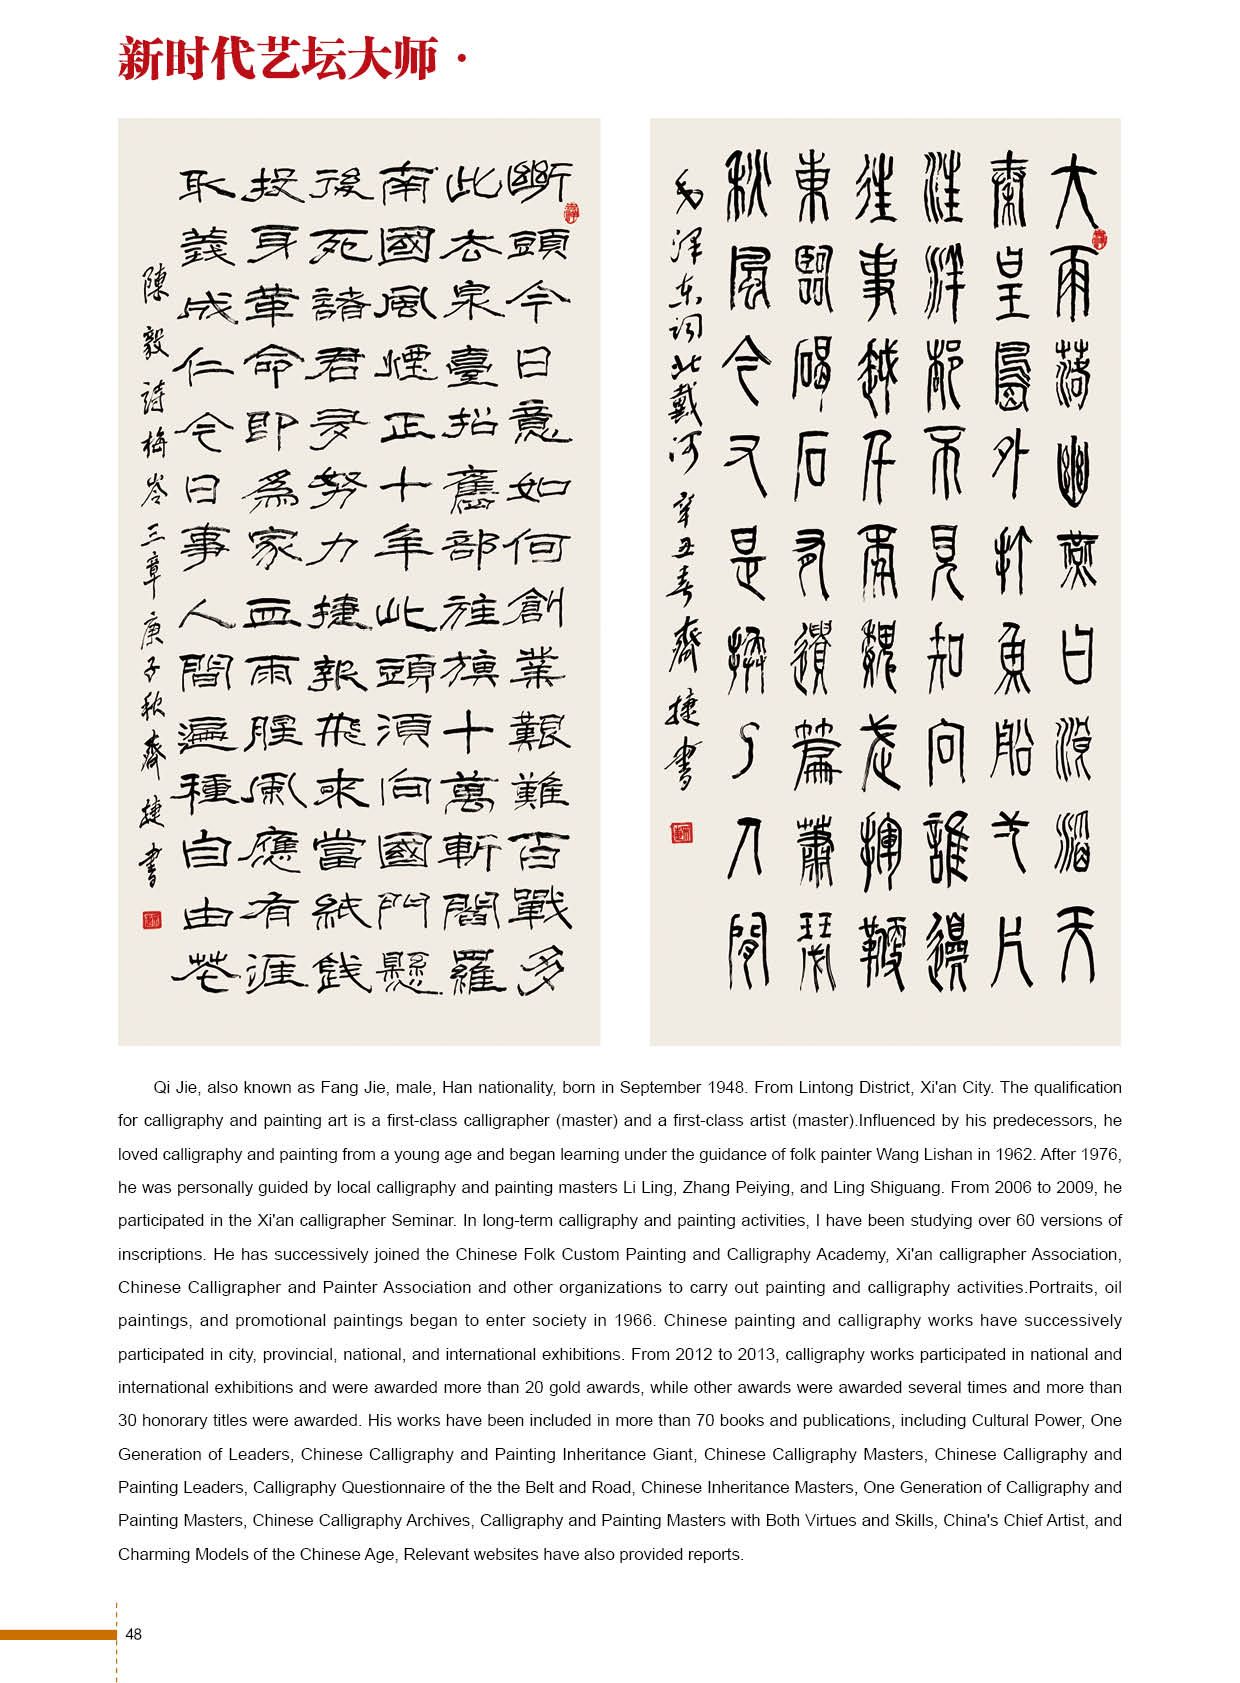 新时代艺坛大师·
斷頭今日意如何創業艱難百戰多
此去泉臺招舊部旌旗十萬斬閻羅
南國風煙正十年此頭須向國門懸
後死諸君多努力捷報飛來當紙錢
投身革命即爲家血雨腥風應有涯
取義成仁今日事人間遍種自由花
陳毅詩梅岺三章庚子秋齊捷書
大雨落幽燕白浪滔天
秦皇島外打魚船弌片
汪洋都不見知向誰邊
往事越千年魏武揮鞭
東臨碣石有遺篇蕭瑟
秋風今又是換了人間
毛澤东词北戴河辛丑春齊捷書
Qi Jie, also known as Fang Jie, male, Han nationality, born in September 1948. From Lintong District, Xi'an City. The qualification
for calligraphy and painting art is a first-class calligrapher (master) and a first-class artist (master).Influenced by his predecessors, he
loved calligraphy and painting from a young age and began learning under the guidance of folk painter Wang Lishan in 1962. After 1976,
he was personally guided by local calligraphy and painting masters Li Ling, Zhang Peiying, and Ling Shiguang. From 2006 to 2009, he
participated in the Xi'an calligrapher Seminar. In long-term calligraphy and painting activities, I have been studying over 60 versions of
inscriptions. He has successively joined the Chinese Folk Custom Painting and Calligraphy Academy, Xi'an calligrapher Association,
Chinese Calligrapher and Painter Association and other organizations to carry out painting and calligraphy activities.Portraits, oil
paintings, and promotional paintings began to enter society in 1966. Chinese painting and calligraphy works have successively
participated in city, provincial, national, and international exhibitions. From 2012 to 2013, calligraphy works participated in national and
international exhibitions and were awarded more than 20 gold awards, while other awards were awarded several times and more than
30 honorary titles were awarded. His works have been included in more than 70 books and publications, including Cultural Power, One
Generation of Leaders, Chinese Calligraphy and Painting Inheritance Giant, Chinese Calligraphy Masters, Chinese Calligraphy and
Painting Leaders, Calligraphy Questionnaire of the the Belt and Road, Chinese Inheritance Masters, One Generation of Calligraphy and
Painting Masters, Chinese Calligraphy Archives, Calligraphy and Painting Masters with Both Virtues and Skills, China's Chief Artist, and
Charming Models of the Chinese Age, Relevant websites have also provided reports.
48